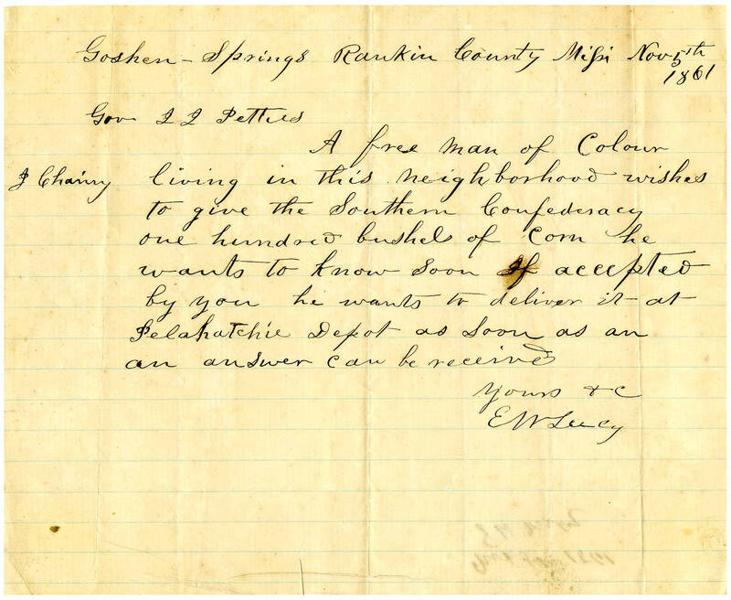 Goshen - Springs Rankin County Missi Nov 5th
1861
Gov J J Pettus
A free man of Colour
J Chairy living in this neighborhood wishes
to give the Southern Confederacy
one hundred bushels of Corn he
wants to know soon If accepted
by you he wants to deliver it at
Pelahatchie Depot as soon as an
an answer can be received
Yours &c
E W Lucy